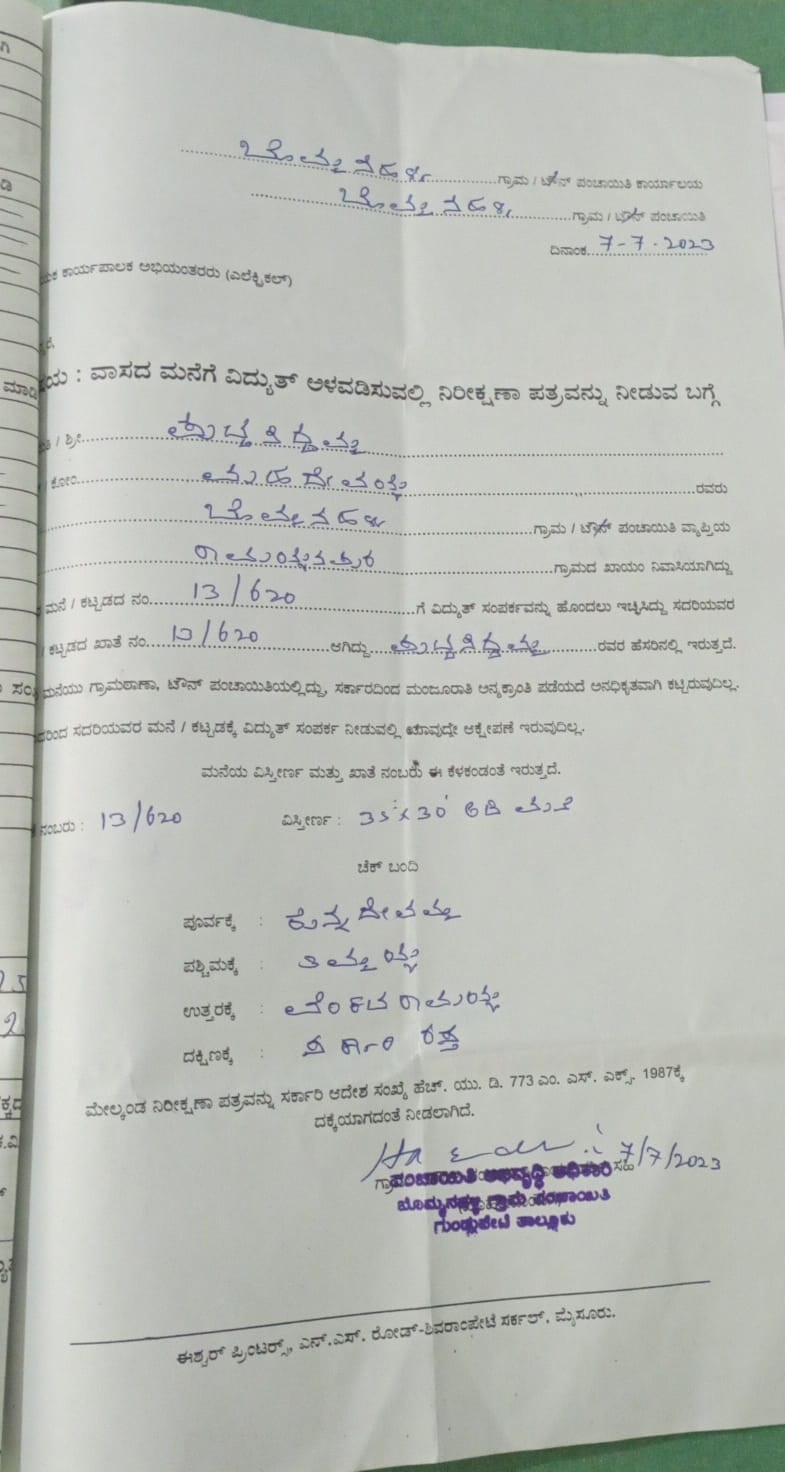 ಬೊಮ್ಮನಹಳ್ಳಿ ಗ್ರಾಮ / ಟೌನ್ ಪಂಚಾಯಿತಿ ಕಾರ್ಯಾಲಯ
ಬೊಮ್ಮನಹಳ್ಳಿ ಗ್ರಾಮ / ಟೌನ್ ಪಂಚಾಯಿತಿ
ದಿನಾಂಕ 7-7-2023
ಕಾರ್ಯಪಾಲಕ ಅಭಿಯಂತರರು (ಎಲೆಕ್ಟ್ರಿಕಲ್)
: ವಾಸದ ಮನೆಗೆ ವಿದ್ಯುತ್ ಅಳವಡಿಸುವಲ್ಲಿ ನಿರೀಕ್ಷಣಾ ಪತ್ರವನ್ನು ನೀಡುವ ಬಗ್ಗೆ
/ ಶ್ರೀ
ಕೋಂ ಮಹದೇವಯ್ಯ ರವರು
ಬೊಮ್ಮನಹಳ್ಳಿ ಗ್ರಾಮ / ಟೌನ್ ಪಂಚಾಯಿತಿ ವ್ಯಾಪ್ತಿಯ
ರಾಮಯ್ಯನಪುರ ಗ್ರಾಮದ ಖಾಯಂ ನಿವಾಸಿಯಾಗಿದ್ದು
ಮನೆ / ಕಟ್ಟಡದ ನಂ. 13/620 ಗೆ ವಿದ್ಯುತ್ ಸಂಪರ್ಕವನ್ನು ಹೊಂದಲು ಇಚ್ಛಿಸಿದ್ದು ಸದರಿಯವರ
ಕಟ್ಟಡದ ಖಾತೆ ನಂ. 13/620 ಆಗಿದ್ದು ರವರ ಹೆಸರಿನಲ್ಲಿ ಇರುತ್ತದೆ.
ಮನೆಯು ಗ್ರಾಮಠಾಣಾ, ಟೌನ್ ಪಂಚಾಯಿತಿಯಲ್ಲಿದ್ದು, ಸರ್ಕಾರದಿಂದ ಮಂಜೂರಾತಿ ಅನ್ಯಕ್ರಾಂತಿ ಪಡೆಯದೆ ಅನಧಿಕೃತವಾಗಿ ಕಟ್ಟಿರುವುದಿಲ್ಲ.
ಸದರಿಯವರ ಮನೆ / ಕಟ್ಟಡಕ್ಕೆ ವಿದ್ಯುತ್ ಸಂಪರ್ಕ ನೀಡುವಲ್ಲಿ ಯಾವುದೇ ಆಕ್ಷೇಪಣೆ ಇರುವುದಿಲ್ಲ.
ಮನೆಯ ವಿಸ್ತೀರ್ಣ ಮತ್ತು ಖಾತೆ ನಂಬರು ಈ ಕೆಳಕಂಡಂತೆ ಇರುತ್ತದೆ.
ನಂಬರು : 13/620 ವಿಸ್ತೀರ್ಣ : 35'x30' ಅಡಿ ಮನೆ
ಚೆಕ್ ಬಂದಿ
ಪೂರ್ವಕ್ಕೆ : ಕುನ್ನದೇವಮ್ಮ
ಪಶ್ಚಿಮಕ್ಕೆ : ತಿಮ್ಮಯ್ಯ
ಉತ್ತರಕ್ಕೆ : ವೆಂಕಟರಾಮಯ್ಯ
ದಕ್ಷಿಣಕ್ಕೆ : ರಸ್ತೆ
ಮೇಲ್ಕಂಡ ನಿರೀಕ್ಷಣಾ ಪತ್ರವನ್ನು ಸರ್ಕಾರಿ ಆದೇಶ ಸಂಖ್ಯೆ ಹೆಚ್. ಯು. ಡಿ. 773 ಎಂ. ಎಸ್. ಎಕ್ಸ್. 1987ಕ್ಕೆ
ದಕ್ಕೆಯಾಗದಂತೆ ನೀಡಲಾಗಿದೆ.
7/7/2023
ಪಂಚಾಯಿತಿ ಅಭಿವೃದ್ಧಿ ಅಧಿಕಾರಿ
ಬೊಮ್ಮನಹಳ್ಳಿ ಗ್ರಾಮ ಪಂಚಾಯಿತಿ
ಗುಂಡ್ಲುಪೇಟೆ ತಾಲ್ಲೂಕು
ಈಶ್ವರ್ ಪ್ರಿಂಟರ್ಸ್, ಎನ್.ಎಸ್. ರೋಡ್-ಶಿವರಾಂಪೇಟೆ ಸರ್ಕಲ್, ಮೈಸೂರು.